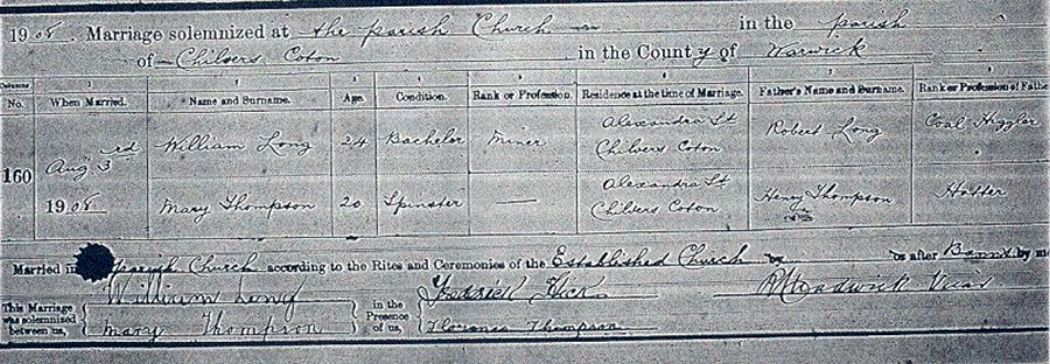 1908. Marriage solemnized at the parish Church in the parish
of Chilvers Coton in the County of Warwick
Columns 1 2 3 4 5 6 7 8
No. When Married. Name and Surname. Age. Condition. Rank or Profession. Residence at the time of Marriage. Father's Name and Surname. Rank or Profession of Fathe
160 Aug 3rd William Long 24 Bachelor Miner Alexandra St Chilvers Coton Robert Long Coal Higgler
1908 Mary Thompson 20 Spinster — Alexandra St Chilvers Coton Henry Thompson Hatter
Married in Parish Church according to the Rites and Ceremonies of the Established Church by or after Banns by me
This Marriage was solemnized between us, William Long in the Presence of us,
Mary Thompson Florence Thompson Vicar